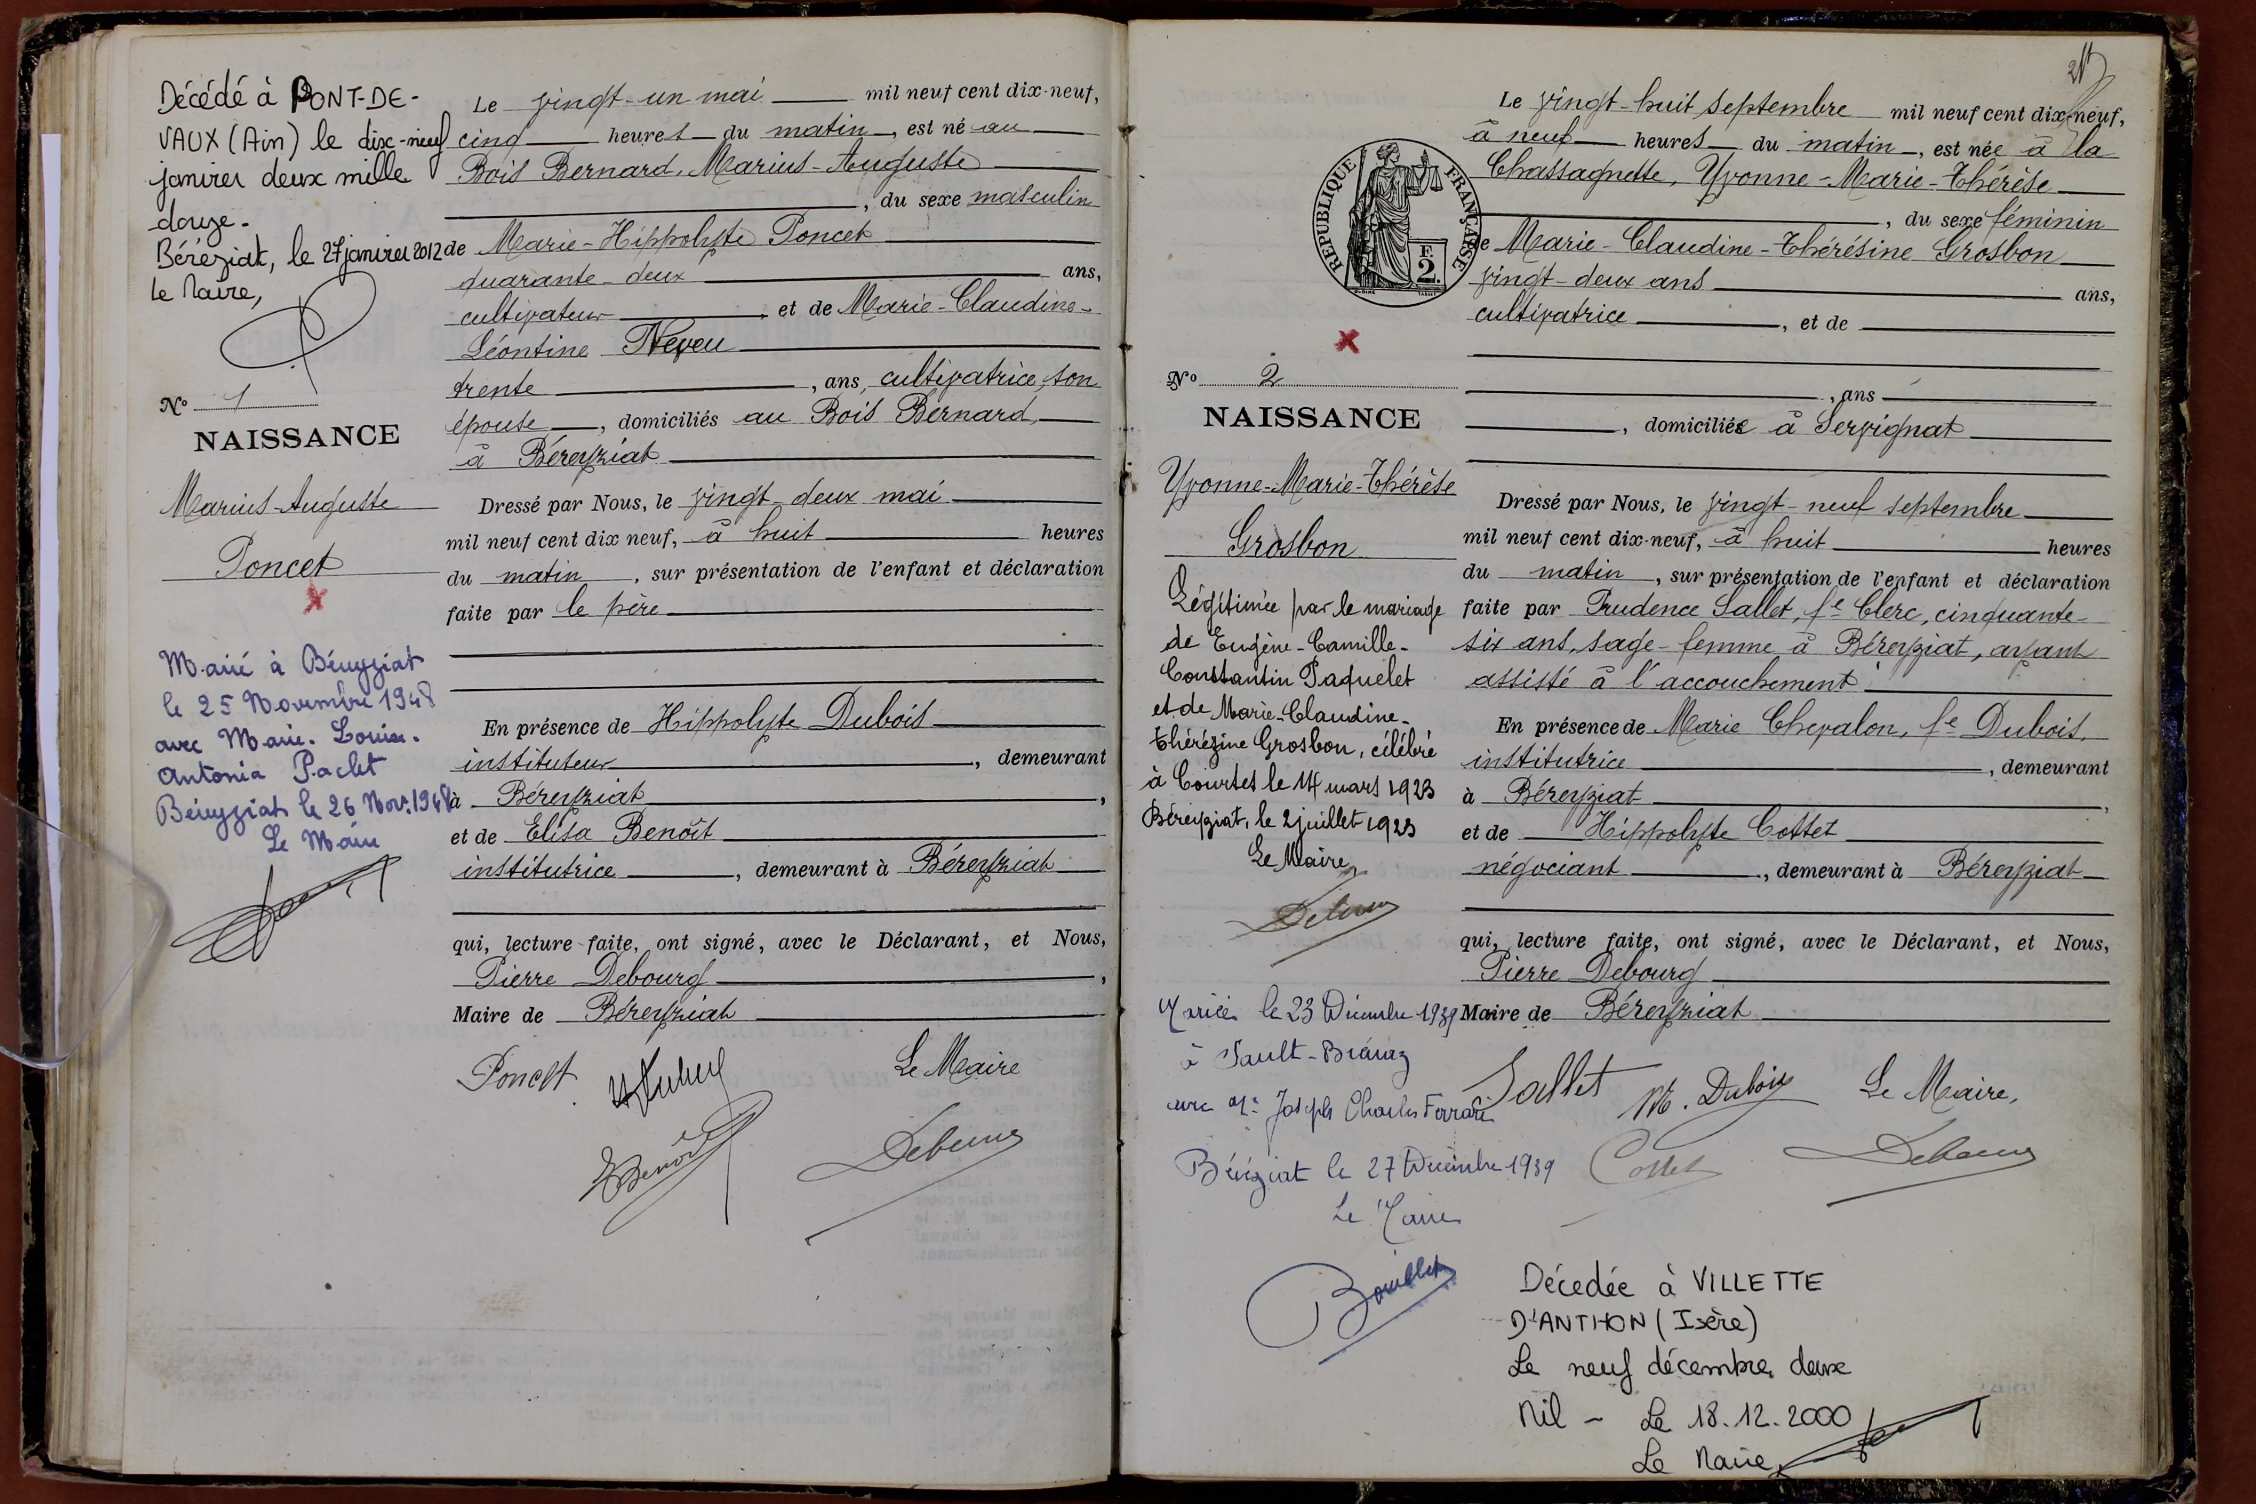 Décédé à PONT-DE-
VAUX (Ain) le dix-neuf
janvier deux mille
douze.
Béréziat, le 27 janvier 2012
Le Maire,
N° 1
NAISSANCE
Marius-Auguste
Poncet
Marié à Béreyziat
le 25 Novembre 1948
avec Marie-Louise-
Antonia Paclet
Béreyziat le 26 Nov. 1948
Le Maire
Le vingt-un mai mil neuf cent dix-neuf,
cinq heures du matin, est né au
Bois Bernard, Marius-Auguste
, du sexe masculin
de Marie-Hippolyte Poncet
quarante-deux ans,
cultivateur et de Marie-Claudine-
Léontine Neveu
trente , ans, cultivatrice, son
épouse , domiciliés au Bois Bernard,
à Béreyziat
Dressé par Nous, le vingt-deux mai
mil neuf cent dix neuf, à huit heures
du matin , sur présentation de l'enfant et déclaration
faite par le père
En présence de Hippolyte Dubois
instituteur , demeurant
à Béreyziat ,
et de Elisa Benoît
institutrice , demeurant à Béreyziat
qui, lecture faite, ont signé, avec le Déclarant, et Nous,
Pierre Debourg ,
Maire de Béreyziat
Poncet
Le Maire
EBenoît
21
RÉPUBLIQUE FRANÇAISE
F.
2.
N° 2
NAISSANCE
Yvonne-Marie-Thérèse
Grosbon
Légitimée par le mariage
de Eugène-Camille-
Constantin Paquelet
et de Marie-Claudine-
Thérézine Grosbon, célébré
à Courtes le 14 mars 1923
Béreyziat, le 2 juillet 1923
Le Maire
Mariée le 23 Décembre 1939
à Sault-Brénaz
avec Mr Joseph Charles Ferrari
Béréziat le 27 Décembre 1939
Le Maire
Bouillet
Le vingt-huit septembre mil neuf cent dix-neuf,
à neuf heures du matin, est née à la
Chassagnette, Yvonne-Marie-Thérèse
, du sexe féminin
e Marie-Claudine-Thérésine Grosbon
vingt-deux ans ans,
cultivatrice , et de
, ans
, domiciliée à Servignat
Dressé par Nous, le vingt-neuf septembre
mil neuf cent dix-neuf, à huit heures
du matin , sur présentation de l'enfant et déclaration
faite par Prudence Sallet, fe Clerc, cinquante-
six ans, sage-femme à Béreyziat, ayant
assisté à l'accouchement
En présence de Marie Chevalon, fe Dubois,
institutrice , demeurant
à Béreyziat ,
et de Hippolyte Cottet
négociant , demeurant à Béreyziat
qui, lecture faite, ont signé, avec le Déclarant, et Nous,
Pierre Debourg
Maire de Béreyziat
Sallet M. Dubois Le Maire,
Cottet Debourg
Décédée à VILLETTE
D'ANTHON (Isère)
Le neuf décembre deux
Mil - Le 18.12.2000
Le Maire,